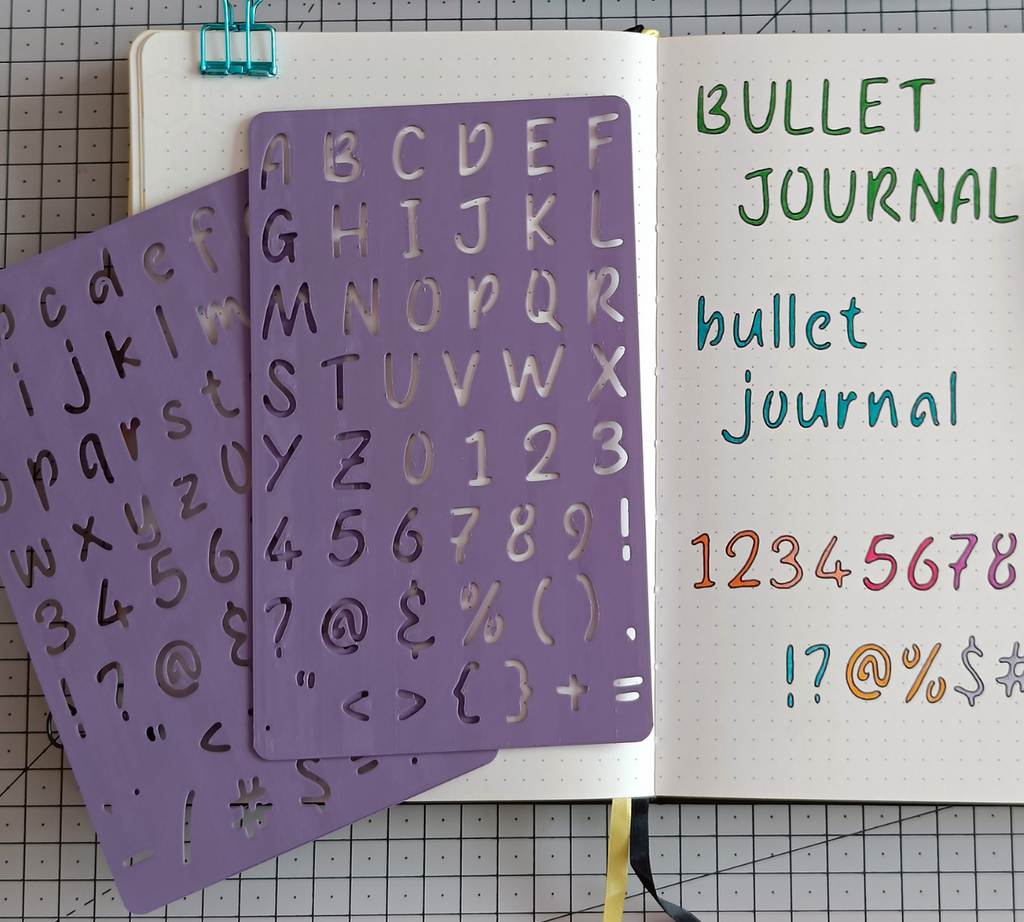 A B C D E F
G H I J K L
M N O P Q R
S T U V W X
Y Z 0 1 2 3
4 5 6 7 8 9 !
? @ & % ( ) .
. " < > { } + =
c d e f
i j k l m
p q r s t
w x y z 0
3 4 5 6
! ? @ &
" <
- / # $
BULLET
JOURNAL
bullet
journal
12345678
!?@%$#